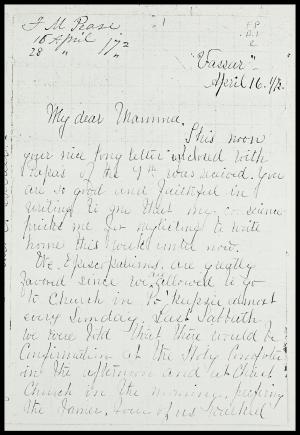 F. M. Pease
16 April 1872
28 " "
"Vassar"
April 16. /72.
My dear Mamma,
This noon
your nice long letter enclosed with
Papas of the 9th was received. You
are so good and faithful in
writing to me that my conscience
pricks me for neglecting to write
home this week until now.
We Episcopalians, are greatly
favored since we allowed to go
to Church in Po'keepsie almost
every Sunday. Last Sabbath
we were told that there would be
Confirmation at the Holy Comforter
in the afternoon and at Christ
Church in the morning, prefering
the former, four of us